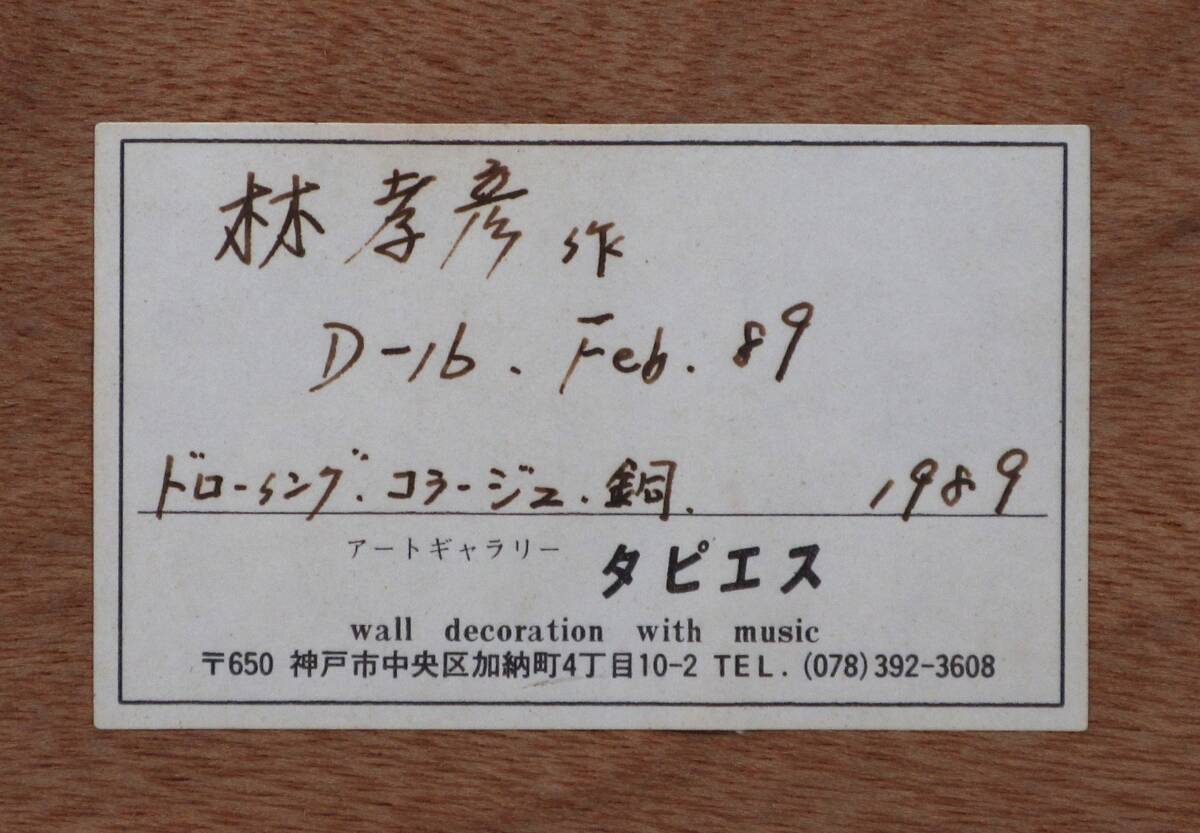 林孝彦 作
D-16. Feb. 89
ドローイング. コラージュ. 銅. 1989
アートギャラリー タピエス
wall decoration with music
〒650 神戸市中央区加納町4丁目10-2 TEL. (078)392-3608